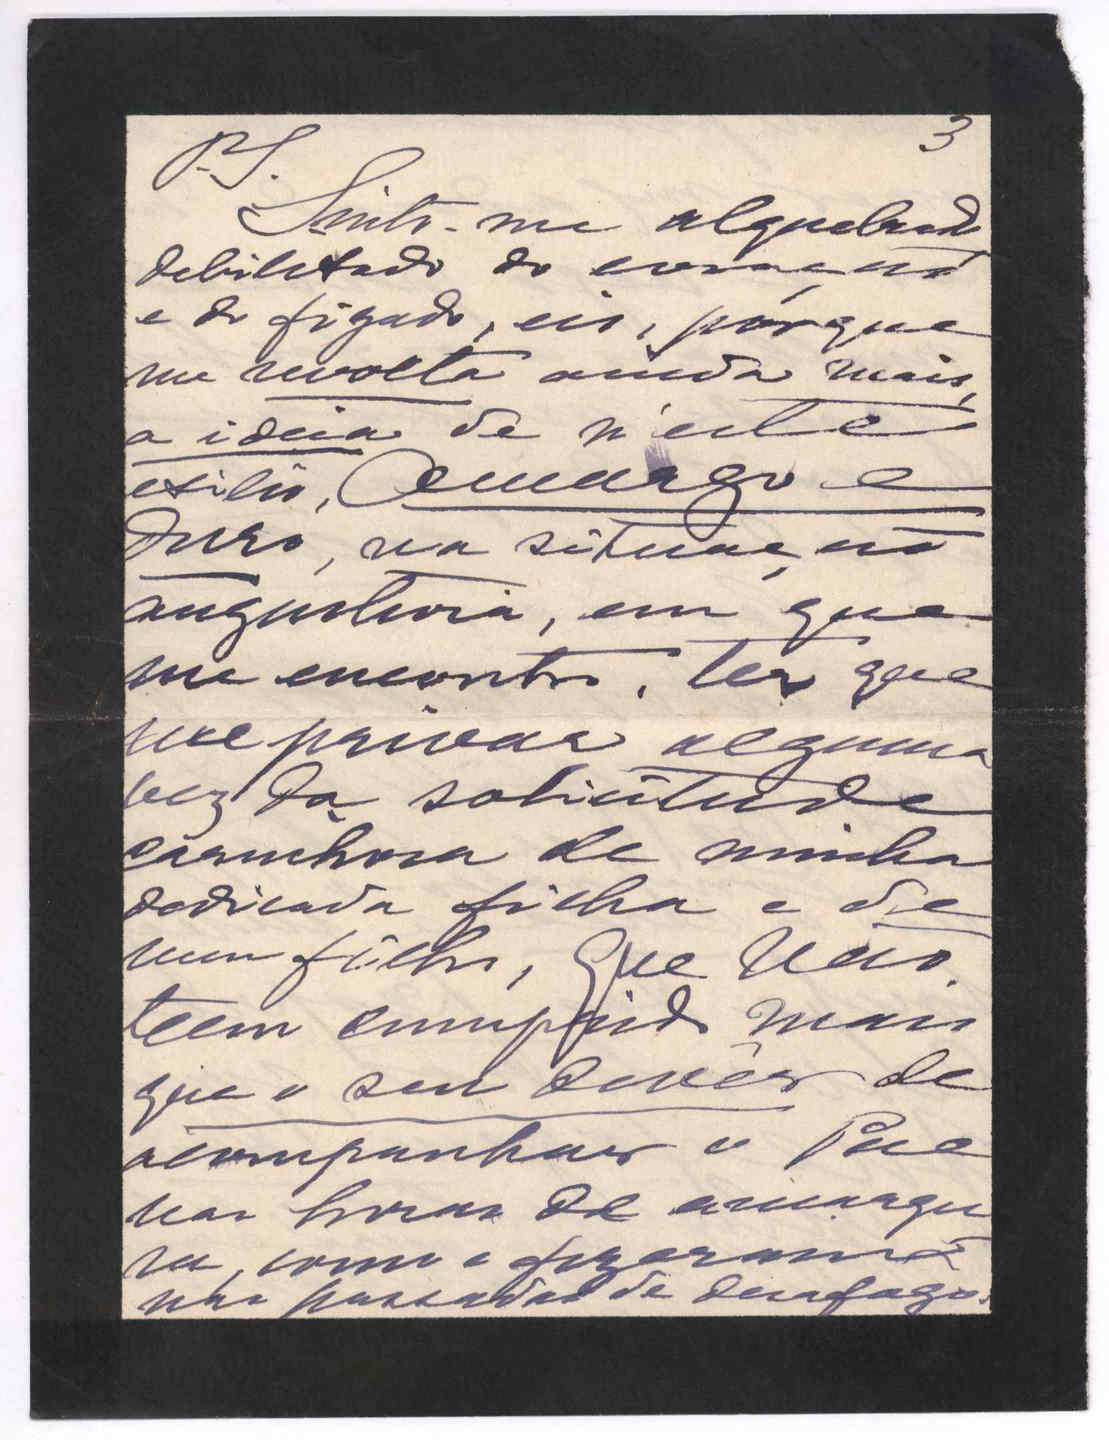 3
P.S.
Sinto-me alquebrado
debilitado do coração
e do figado, eis, pórque
me revolta ainda mais,
a ideia de n'este
exilio, amargo e
duro, na situação
angustiosa, em que
me encontro, ter que
me privar alguma
vez da solicitude
carinhosa de minha
dedicada filha e de
um filho, que não
teem cumprido mais
que o seu devêr de
acompanhar o Pae
nas horas de amargu
ra, como o fizeram
nas passadas de desafogo.